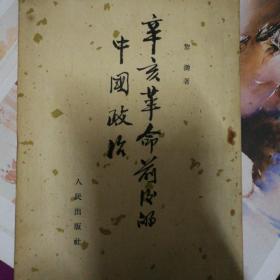 辛亥革命前后的
中國政治
黎澍著
人民出版社